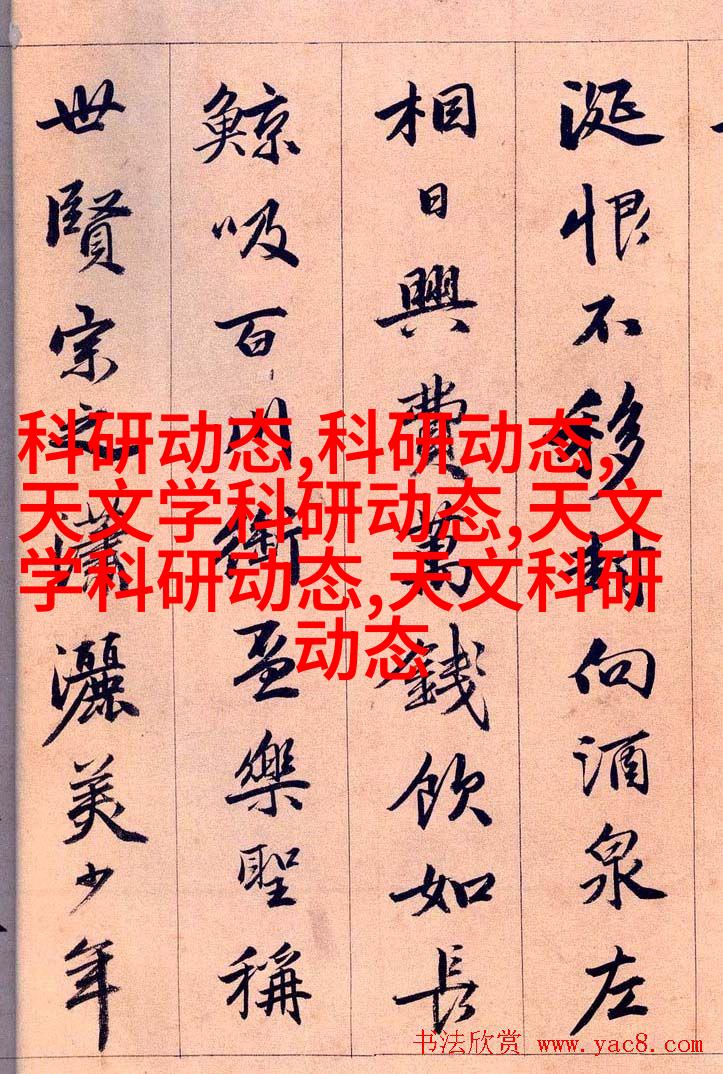 涎恨不移封向酒泉左
相日興費萬錢飲如長
鯨吸百川銜盃樂聖稱
世賢宗之瀟灑美少年
科研动态,科研动态,
天文学科研动态,天文
学科研动态,天文科研
动态
书法欣赏 www.yac8.com